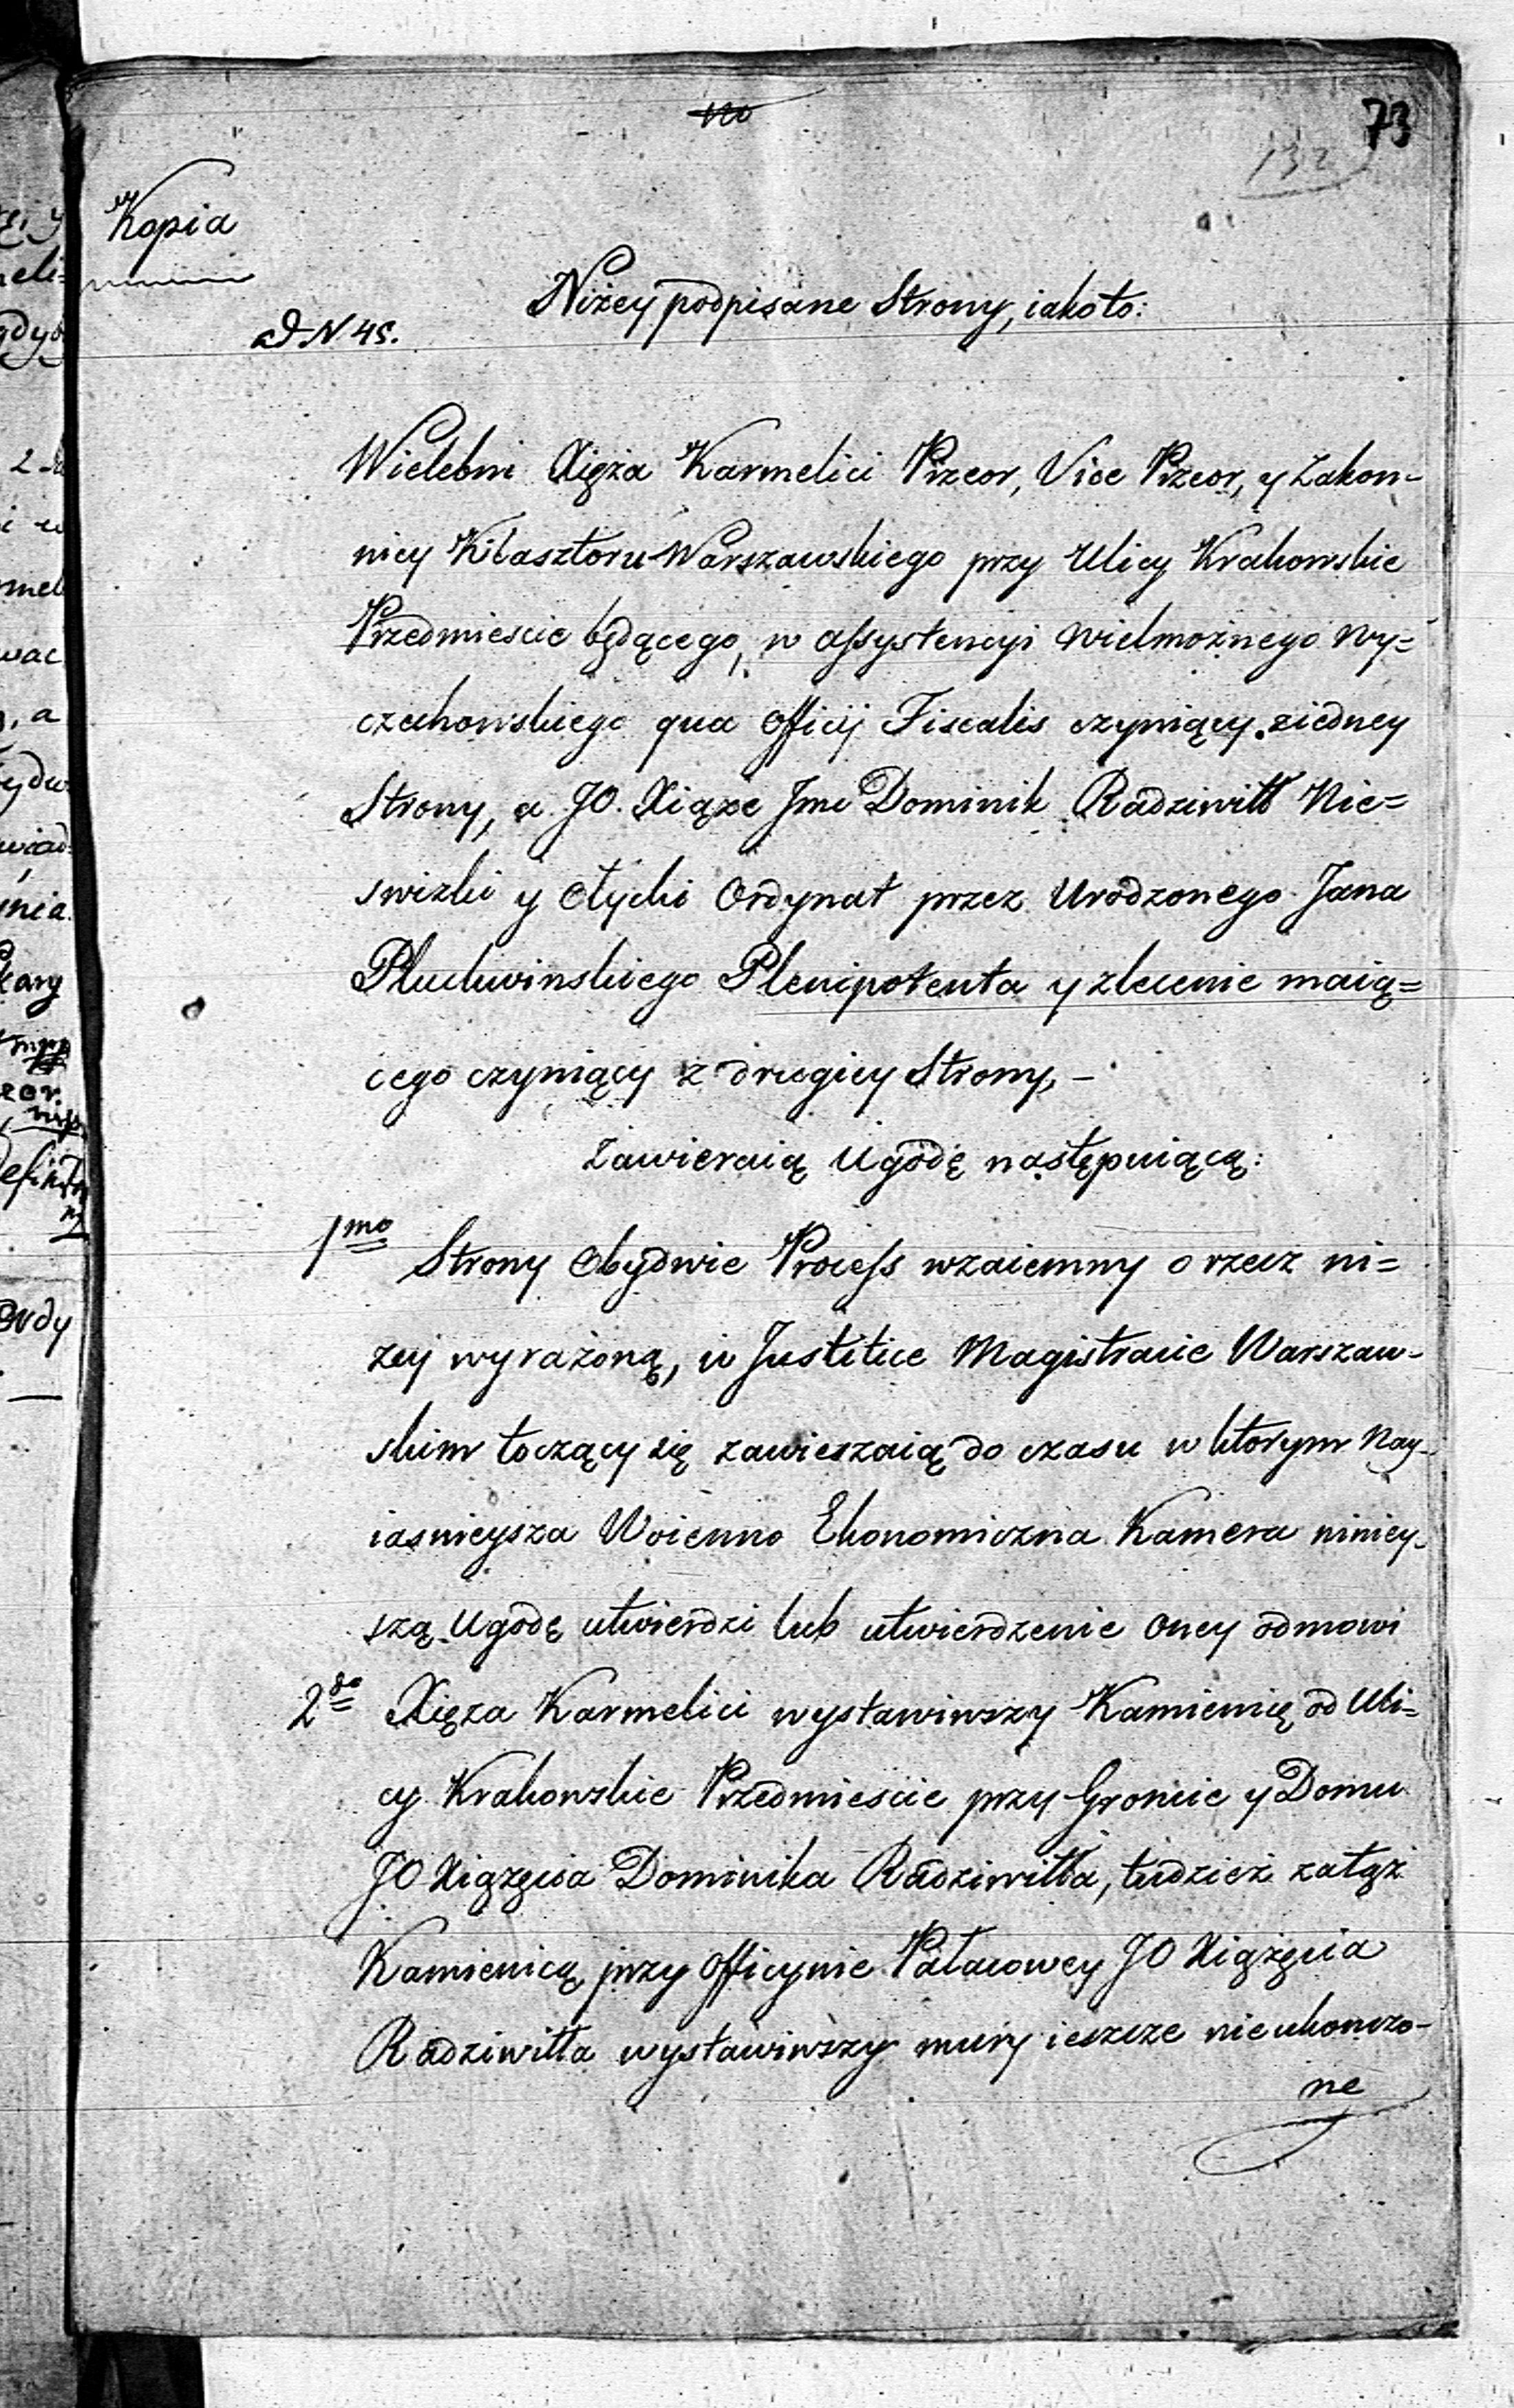 73
132
Kopia
ad N 45.
Niżey podpisane Strony, iako to:
Wielebni Xięża Karmelici Przeor, Vice Przeor, y Zakon-
nicy Klasztoru Warszawskiego przy Ulicy Krakowskie
Przedmiescie będącego, w assystencyi Wielmożnego Wy=
czechowskiego qua Officij Fiscalis czyniący z iedney
Strony, a JO. Xiąże Jmc Dominik Radziwiłł Nie=
swizki y Ołycki Ordynat przez Urodzonego Jana
Pluchwinskiego Plenipotenta y zlecenie maią=
cego czyniący z drugiey Strony, –
Zawieraią Ugodę następuiącą:
1mo Strony Obydwie Process wzaiemny o rzecz ni=
zey wyrażoną, w Justitice Magistracie Warszaw-
skim toczący się zawieszaią do czasu w ktorym Nay-
iasnieysza Woienno Ekonomiczna Kamera niniey-
szą Ugodę utwierdzi lub utwierdzenie Oney odmowi
2do Xięza Karmelici wystawiwszy Kamienicę od Uli=
cy Krakowskie Przedmiescie przy Groncie y Domu
JO Xiązęcia Dominika Radziwiłła, tudzież zatąż
Kamienicą przy Officynie Pałacowey JO Xiążęcia
Radziwiłła wystawiwszy mury ieszcze nieukonczo-
ne